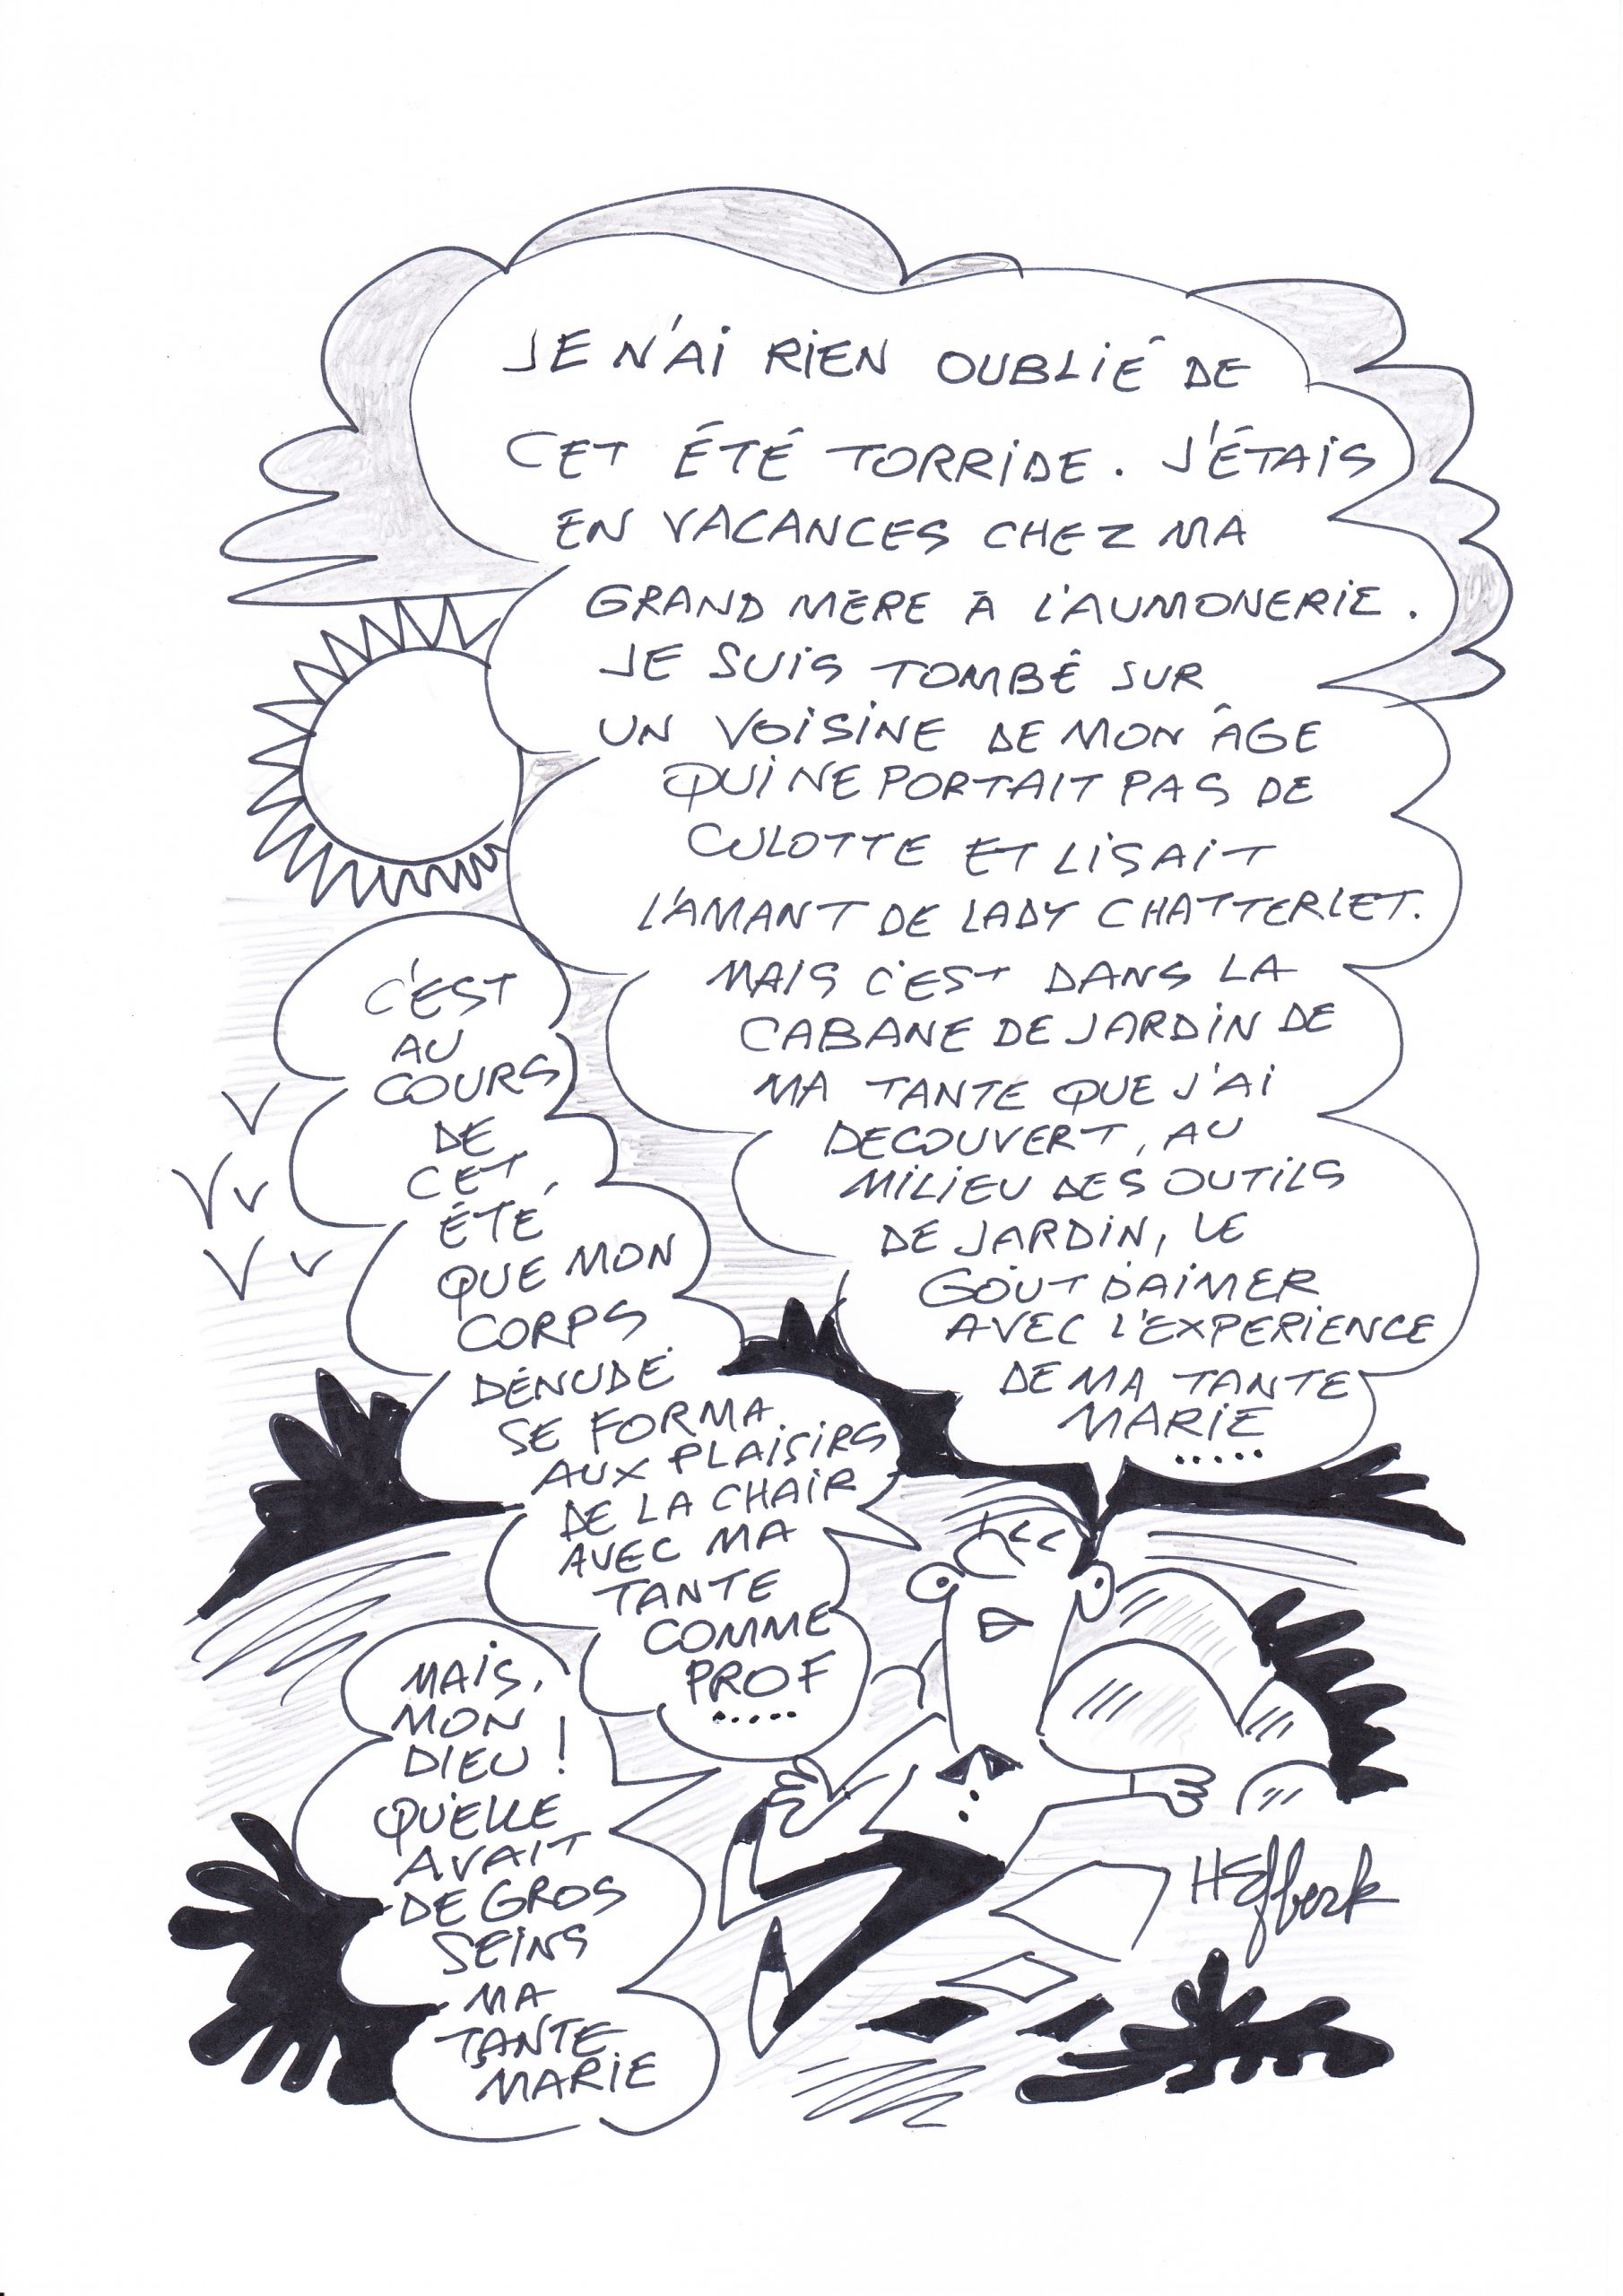 JE N'AI RIEN OUBLIÉ DE
CET ÉTÉ TORRIDE. J'ÉTAIS
EN VACANCES CHEZ MA
GRAND MÈRE À L'AUMONERIE.
JE SUIS TOMBÉ SUR
UN VOISINE DE MON ÂGE
QUI NE PORTAIT PAS DE
CULOTTE ET LISAIT
L'AMANT DE LADY CHATTERLET.
MAIS C'EST DANS LA
CABANE DE JARDIN DE
MA TANTE QUE J'AI
DECOUVERT, AU
MILIEU DES OUTILS
DE JARDIN, LE
GOÛT D'AIMER
AVEC L'EXPERIENCE
DE MA TANTE
MARIE
.....
C'EST
AU
COURS
DE
CET
ÉTÉ
QUE MON
CORPS
DÉNUDÉ
SE FORMA
AUX PLAISIRS
DE LA CHAIR
AVEC MA
TANTE
COMME
PROF
.....
MAIS,
MON
DIEU !
QU'ELLE
AVAIT
DE GROS
SEINS
MA
TANTE
MARIE